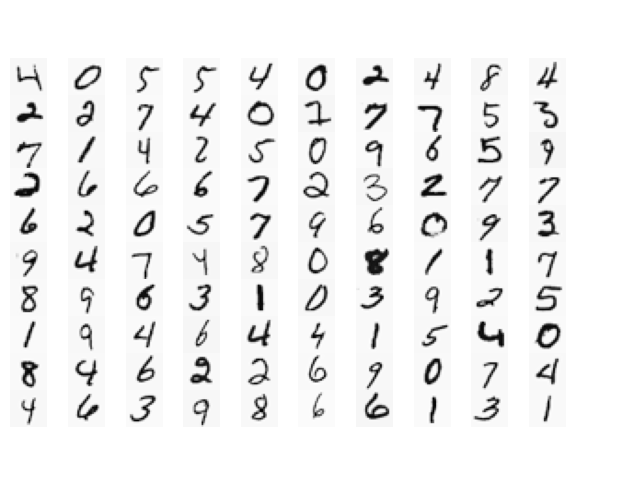 4 0 5 5 4 0 2 4 8 4
2 2 7 4 0 1 7 7 5 3
7 1 4 2 5 0 9 6 5 9
2 6 6 6 7 2 3 2 7 7
6 2 0 5 7 9 6 0 9 3
9 4 7 4 8 0 8 1 1 7
8 9 6 3 1 0 3 9 2 5
1 9 4 6 4 4 1 5 4 0
8 4 6 2 2 6 9 0 7 4
4 6 3 9 8 6 6 1 3 1